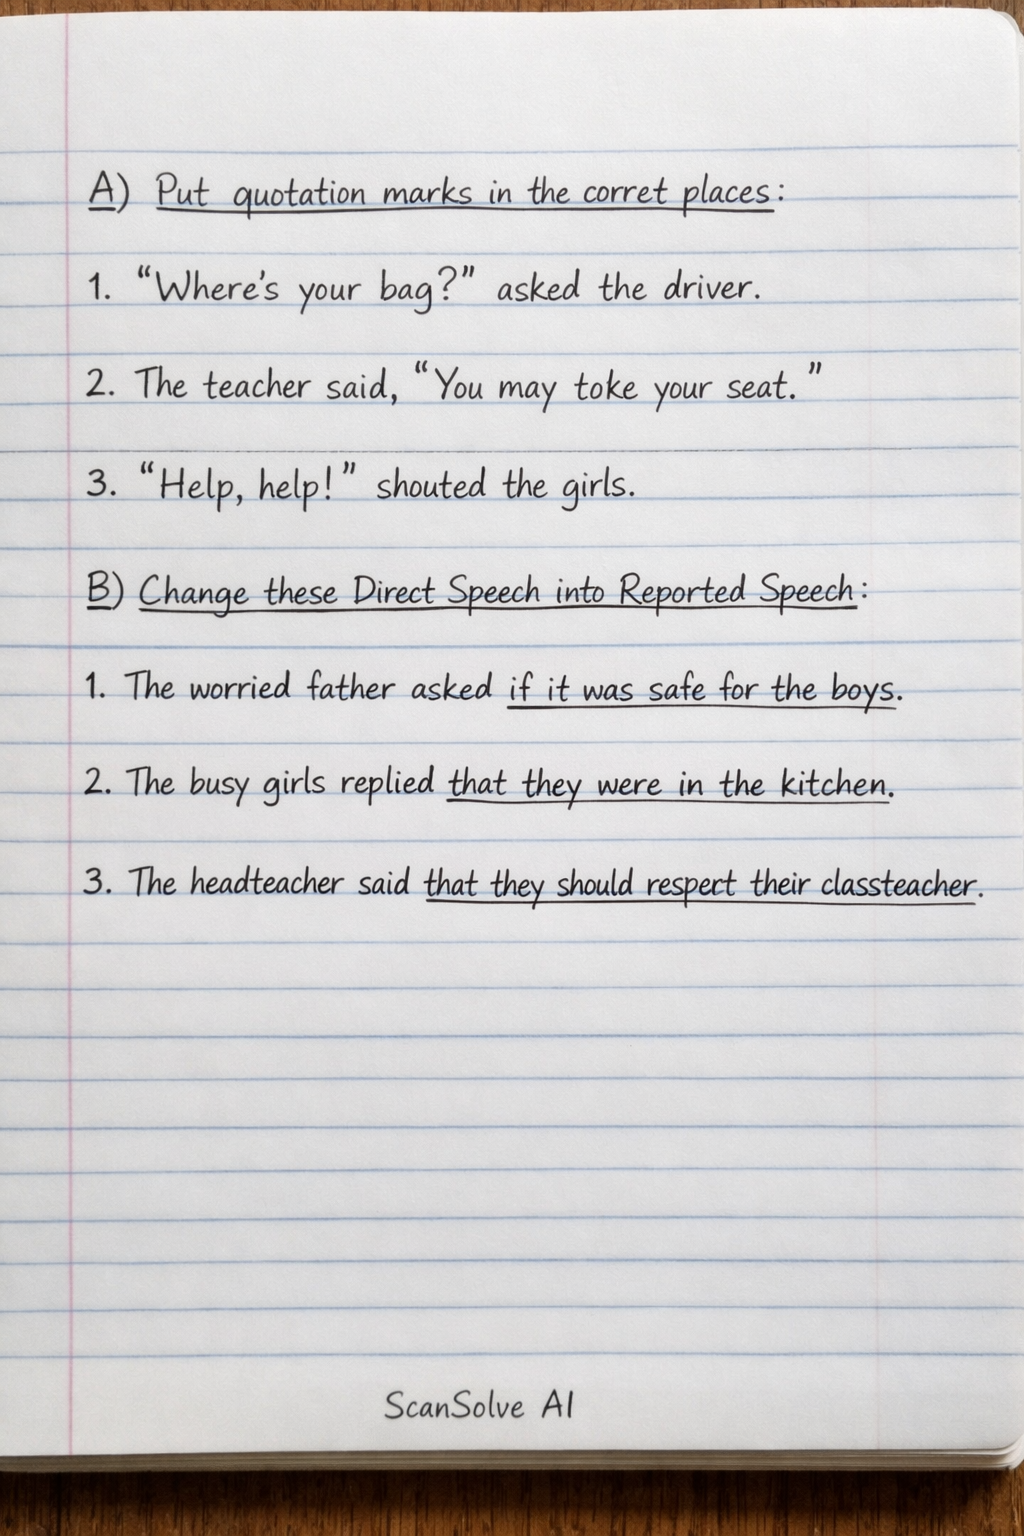 A) Put quotation marks in the corret places:
1. “Where's your bag?” asked the driver.
2. The teacher said, “You may toke your seat.”
3. “Help, help!” shouted the girls.
B) Change these Direct Speech into Reported Speech:
1. The worried father asked if it was safe for the boys.
2. The busy girls replied that they were in the kitchen.
3. The headteacher said that they should respert their classteacher.
ScanSolve AI